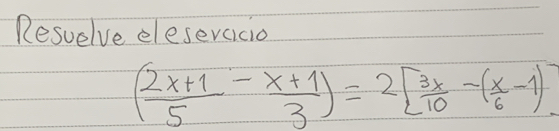 Resuelve el eservcicio
(2x+1/5 - x+1/3) = 2[3x/10 - (x/6 - 1)]